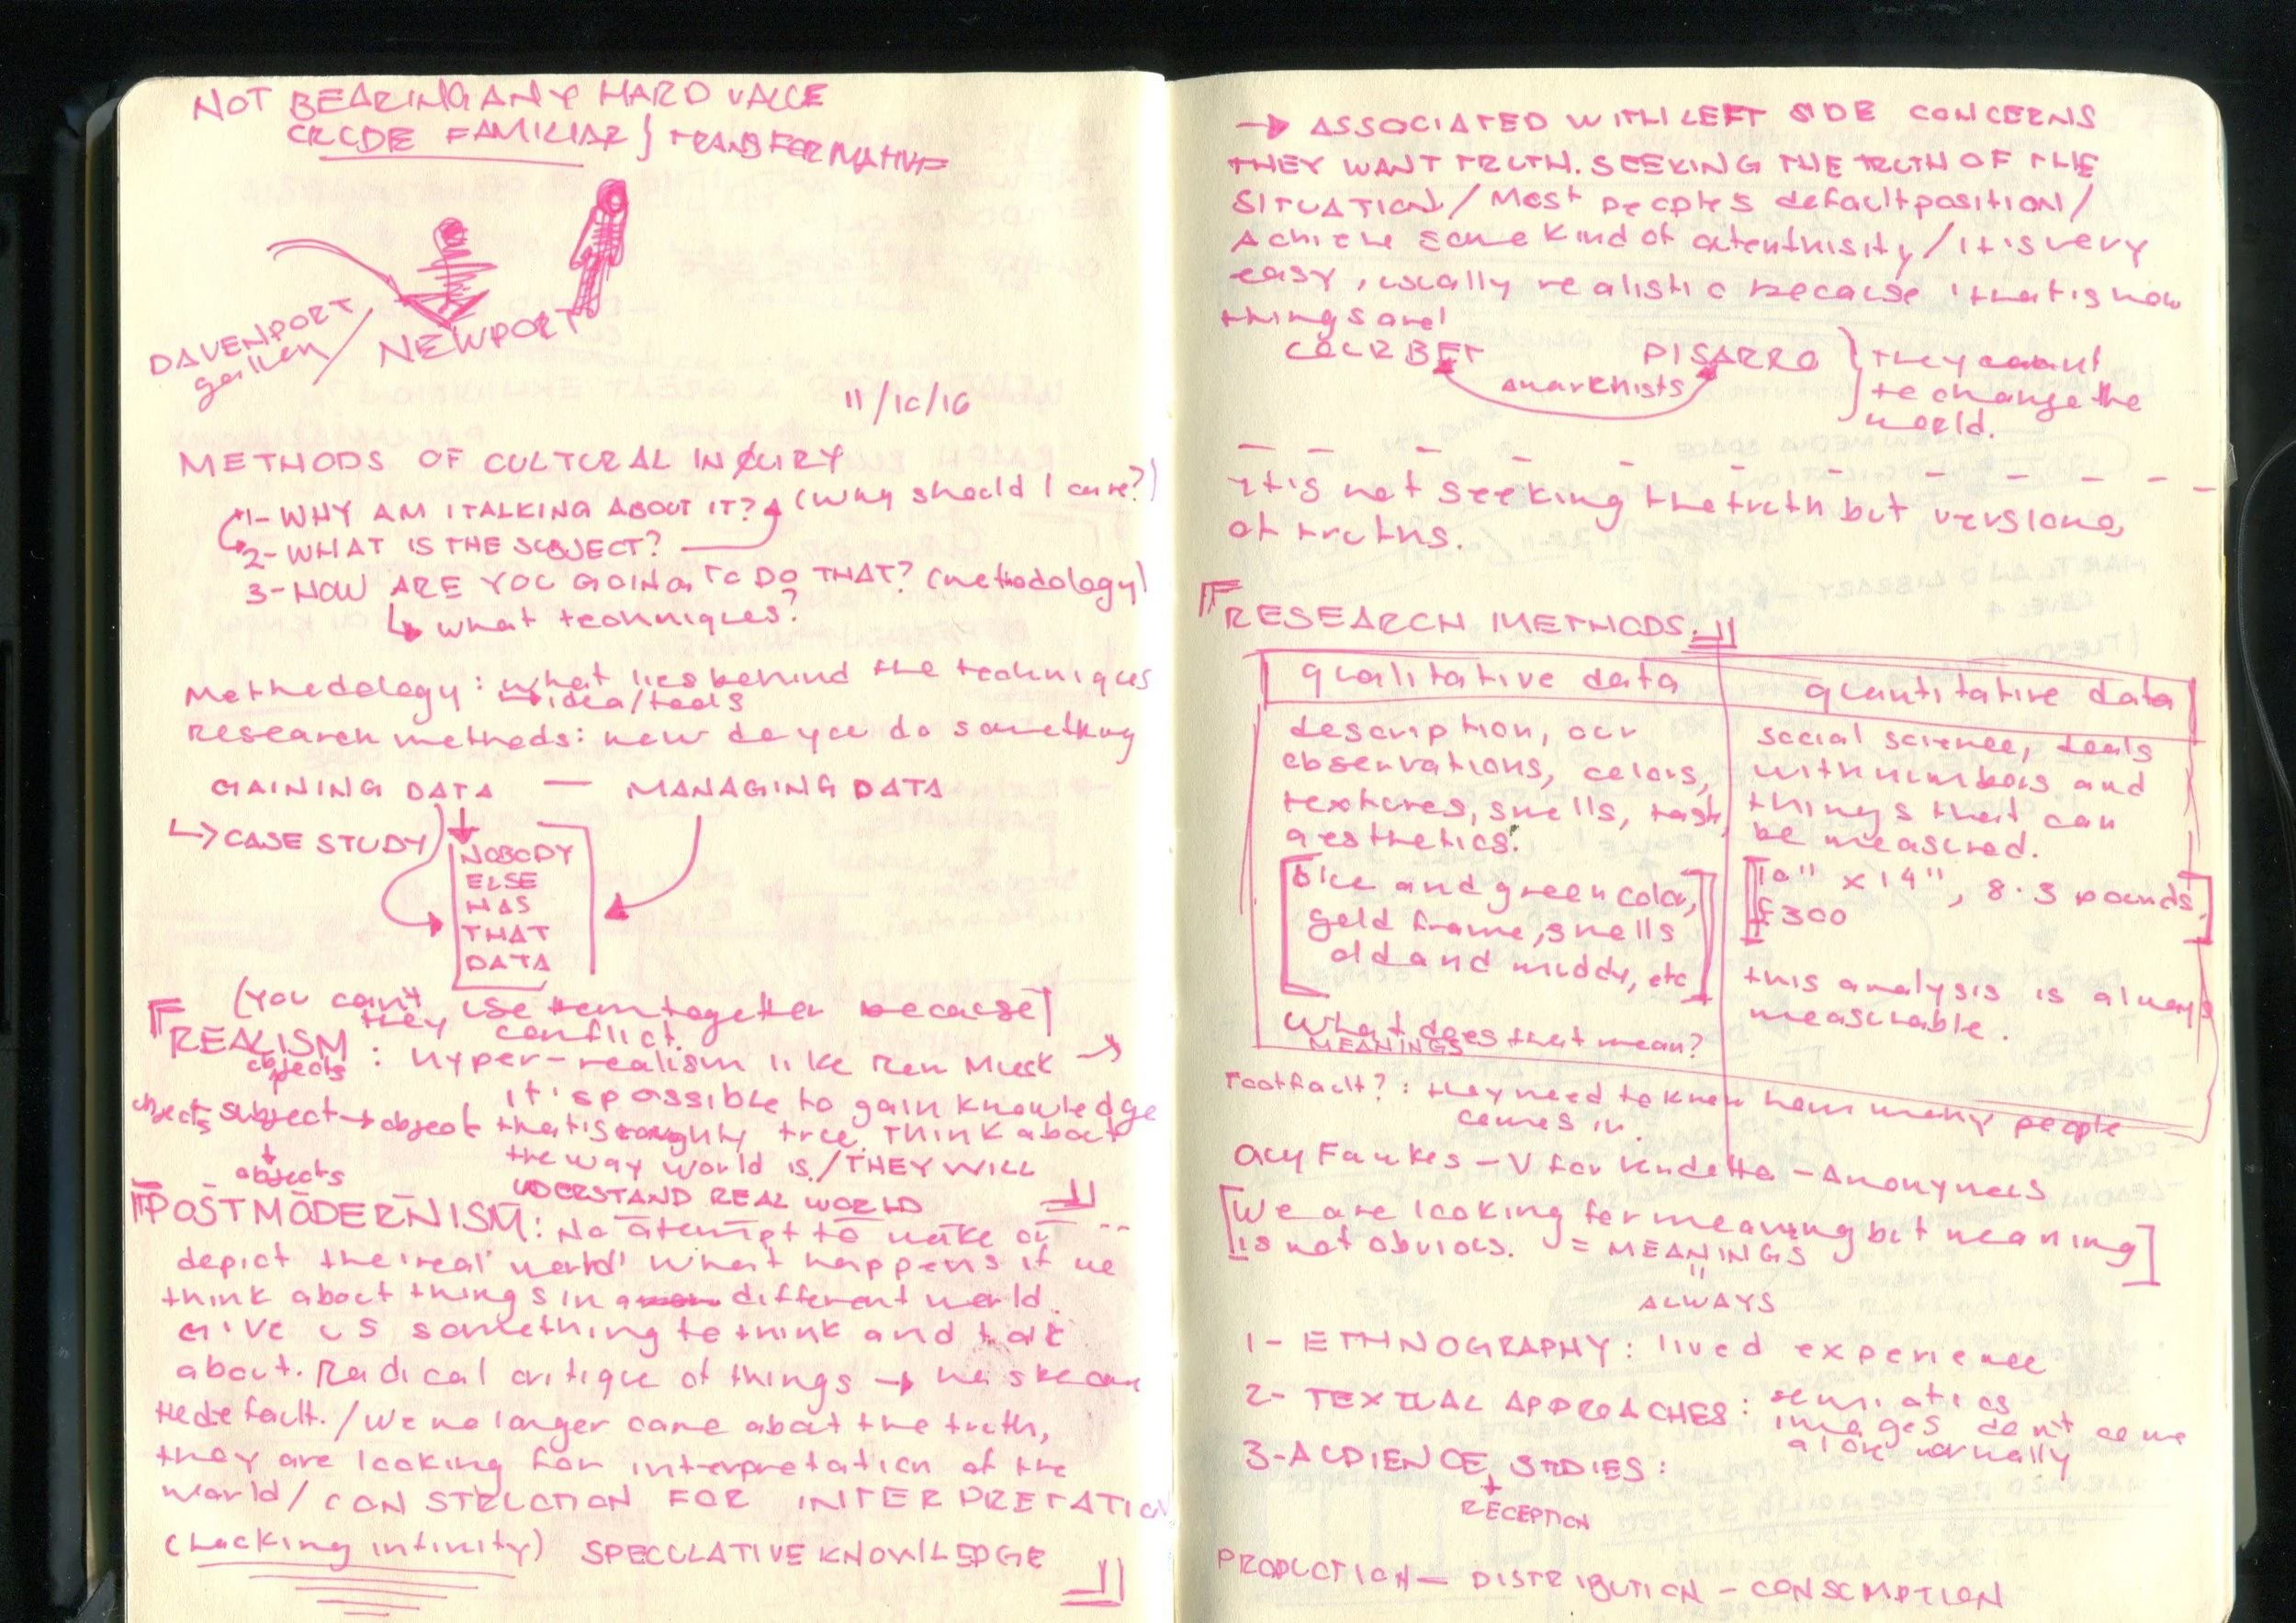 NOT BEARING ANY HARD VALUE
CRUDE FAMILIAR } TRANSFORMATIVE
DAVENPORT / NEWPORT
11/10/16
METHODS OF CULTURAL INQUIRY
1- WHY AM I TALKING ABOUT IT? (Why should I care?)
2- WHAT IS THE SUBJECT?
3- HOW ARE YOU GOING TO DO THAT? (methodology)
↳ what techniques?
Methodology: what lies behind the techniques
→ idea/tools
Research methods: how do you do something
GAINING DATA — MANAGING DATA
↳ CASE STUDY
NOBODY
ELSE
HAS
THAT
DATA
(You can't use them together because
they conflict.
REALISM: hyper-realism like Ron Muek →
objects
it's possible to gain knowledge
objects subject → object that is roughly true. Think about
the way world is./THEY WILL
objects
UDERSTAND REAL WORLD
POSTMODERNISM: No atempt to make or
depict the 'real' world' What happens if we
think about things in a different world.
Give us something to think and talk
about. Radical critique of things →
the default. / We no longer care about the truth,
they are looking for interpretation of the
world / CONSTRUCTION FOR INTERPRETATION
(hacking infinity) SPECULATIVE KNOWLEDGE
→ ASSOCIATED WITH LEFT SIDE CONCERNS
THEY WANT TRUTH. SEEKING THE TRUTH OF THE
SITUATION / Most people's default position /
Achieve some kind of atenthisity / it is very
easy, usually realistic because 'that is how
things are'
COURBET PISARRO } They want
anarchists to change the
world.
It is not seeking the truth but versions
of truths.
RESEARCH METHODS.
qualitative data quantitative data
description, our
observations, colors,
textures, smells, tast,
aesthetics.
[blue and green color,
gold frame, smells
old and muddy, etc]
What does that mean?
MEANINGS
social science, deals
with numbers and
things that can
be measured.
[10" x 14", 8.3 pounds,
£300]
this analysis is always
measurable.
Footfault?: they need to know how many people
comes in.
Guy Fawkes - V for Vendetta - Anonymous
[We are looking for meaning but meaning
is not obvious. = MEANINGS]
ALWAYS
1- ETHNOGRAPHY: lived experience
2- TEXTUAL APPROACHES: semiatics
images don't come
alone normally
3- AUDIENCE STUDIES:
RECEPTION
PRODUCTION - DISTRIBUTION - CONSUMPTION